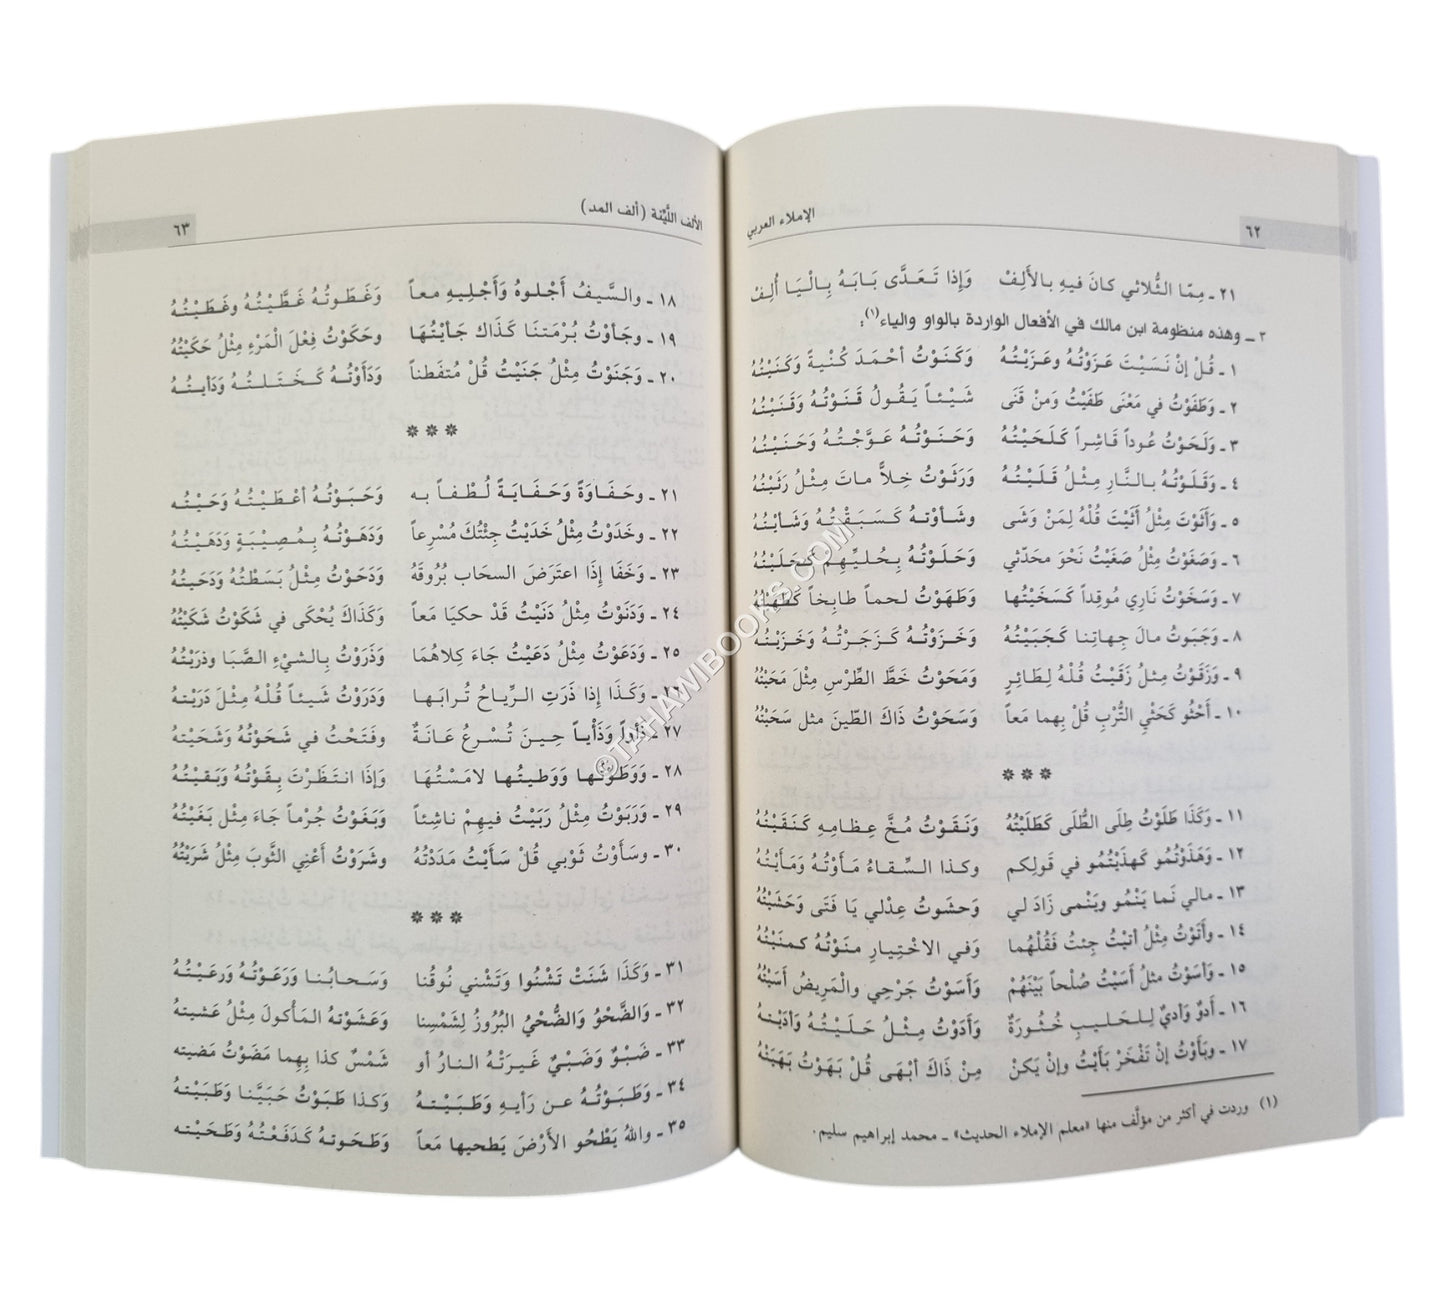 ٦٢
الإملاء العربي
٢١ ـ مِمّا الثُّلاثي كانَ فيهِ بالأَلِفْ وَإذا تَعَدَّى بَابَهُ بِالْيَا أُلِفْ
٢ ـ وهذه منظومة ابن مالك في الأفعال الواردة بالواو والياء(١):
١ ـ قُلْ إنْ نَسَيْتَ عَزَوْتُهُ وعَزَيْتُهُ وَكَنَوْتُ أحْمَدَ كُنْيةً وَكَنَيْتُهُ
٢ ـ وَطَفَوْتُ في مَعْنَى طَفَيْتُ وَمنْ قَنَى شَيْئاً يَقُولُ قَنَوْتُهُ وَقَنَيْتُهُ
٣ ـ وَلَحَوْتُ عُوداً قَاشِراً كَلَحَيْتُهُ وَحَنَوْتُهُ عَوَّجْتُهُ وَحَنَيْتُهُ
٤ ـ وَقَلَوْتُهُ بالنَّارِ مِثْلُ قَلَيْتُهُ وَرَثَوْتُ خِلاًّ ماتَ مِثْلُ رَثَيْتُهُ
٥ ـ وَأَثَوْتُ مِثْلُ أَثَيْتَ قُلْهُ لِمَنْ وَشَى وشَأوْتهُ كَسَبَقْتُهُ وَشَأيْتُهُ
٦ ـ وَصَغَوْتُ مِثْلُ صَغَيْتُ نَحْوَ محَدّثي وَحَلَوْتُهُ بِحُليِّهِم كَحَلَيْتُهُ
٧ ـ وَسَخَوْتُ نَارِي مُوقِداً كَسَخَيْتُها وَطَهَوْتُ لحماً طابِخاً كَطَهَيْتُهُ
٨ ـ وَجَبَوتُ مالَ جِهاتِنا كَجَبَيْتُهُ وَخَزَوْتُهُ كَزَجَرْتُهُ وَخَزَيْتُهُ
٩ ـ وَزَقَوْتُ مِثلُ زَقَيْتُ قُلْهُ لِطَائِرٍ وَمَحَوْتُ خَطَّ الطِّرْسِ مِثْلَ مَحَيْتُهُ
١٠ ـ أَحْثُو كَحَثْيِ التُّرْبِ قُلْ بِهما مَعاً وَسَحَوْتُ ذَاكَ الطّينَ مثل سَحَيْتُهُ
***
١١ ـ وَكَذَا طَلَوْتُ طِلَى الطُّلَى كَطَلَيْتُهُ وَنَقَوْتُ مُخَّ عِظَامِهِ كَنَقَيْتُهُ
١٢ ـ وَهَذَوْتُمُو كَهذَيْتُمُو في قَولِكم وكذا السِّقاءُ مَأَوْتُهُ وَمَأَيْتُهُ
١٣ ـ مالي نَما يَنْمُو ويَنْمى زَادَ لي وَحشوتُ عِدْلي يَا فَتَى وَحَشَيْتُهُ
١٤ ـ وأتَوْتُ مِثْلُ أتيْتُ جِئتُ فَقُلْهُما وَفي الاخْتِيارِ منَوْتُهُ كمنَيْتُهُ
١٥ ـ وَأسَوْتُ مثلُ أسَيْتُ صُلْحاً بَيْنَهُمْ وَأسَوْتُ جَرْحِي والْمَرِيضُ أسَيْتُهُ
١٦ ـ أَدوٌ وَأديٌ لِلحَليبِ خُثُورَةٌ وَأَدَوْتُ مِثْلُ حَلَيْتُهُ وأدَيْتهُ
١٧ ـ وبَأَوْتُ إنْ تَفْخَرْ بَأَيْتُ وإنْ يَكنْ مِنْ ذَاكَ أبْهَى قُلْ بَهَوْتُ بَهَيْتُهُ
(١) وردت في أكثر من مؤلَّف منها «معلم الإملاء الحديث» ـ محمد إبراهيم سليم.
الألف اللَّيّنة (ألف المد)
٦٣
١٨ ـ والسَّيفُ أَجْلوهُ وَأَجْلِيهِ معاً وَغَطَوتُهُ غَطَّيْتُهُ وغَطَيْتُهُ
١٩ ـ وجَأوْتُ بُرْمَتنَا كَذَاكَ جَأَيْتُهَا وحَكَوْتُ فِعْلَ الْمَرْءِ مِثْلُ حَكَيْتُهُ
٢٠ ـ وَجَنَوْتُ مِثْلُ جَنَيْتُ قُلْ مُتفَطناً وَدَأَوْتُهُ كَخَتَلتُهُ وَدَأيتُهُ
***
٢١ ـ وحَفَاوَةً وَحَفَايَةً لُطْفاً به وَحَبَوْتُهُ أعْطَيْتُهُ وَحَبيْتُهُ
٢٢ ـ وخَدَوْتُ مِثْلُ خَدَيْتُ جِئْتُكَ مُسْرِعاً وَدَهَوْتُهُ بِمُصِيْبَةٍ وَدَهَيْتُهُ
٢٣ ـ وَخَفَا إذَا اعتَرَضَ السحَاب بُرُوقَهُ وَدَحَوْتُ مِثْلُ بَسَطْتُهُ وَدَحَيتُهُ
٢٤ ـ وَدَنَوْتُ مِثْلُ دَنَيْتُ قَدْ حكيَا مَعاً وَكَذَاكَ يُحْكَى في شَكَوْتُ شَكَيْتُهُ
٢٥ ـ وَدَعَوْتُ مِثْلُ دَعَيْتُ جَاءَ كِلاهُمَا وَذَرَوْتُ بِالشيْءِ الصَّبَا وذرَيْتُهُ
٢٦ ـ وَكَذَا إذا ذَرَتِ الرِّياحُ تُرابَها وَدَرَوْتُ شَيئاً قُلْهُ مِثْلَ دَرَيْتهُ
٢٧ ـ ذأواً وَذَأْياً حِينَ تُسْرعُ عَانَةٌ وفتَحْتُ في شَحَوْتُهُ وَشَحَيْتهُ
٢٨ ـ وَوَطَوْتُها ووَطيتُها لامَسْتُهَا وَإذا انتَظَرْتَ بِقَوْتُهُ وَبَقيْتُهُ
٢٩ ـ وَرَبَوْتُ مِثْلُ رَبَيْتُ فيهِمْ ناشِئاً وَبَغَوْتُ جُرْماً جَاءَ مِثْل بَغَيْتُهُ
٣٠ ـ وسَأَوْتُ ثَوْبي قُلْ سَأَيْتُ مَدَدْتُهُ وشَرَوْتُ أعْنِي الثَّوبَ مِثْلُ شَرَيْتُهُ
***
٣١ ـ وَكَذَا شَنَتْ تَشْنُوا وَتَشْني نُوقُنا وَسَحابُنا وَرَعَوْتُهُ وَرَعَيْتُهُ
٣٢ ـ وَالضَّحْوُ وَالضُّحْيُ البُرُوزُ لِشَمْسِنا وَعَشَوْتهُ المَأْكولَ مِثْلُ عَشيتهُ
٣٣ ـ ضَبْوٌ وَضَبْيٌ غَيرَتْهُ النارُ أو شَمْسٌ كذا بِهِما مَضَوْتُ مَضيته
٣٤ ـ وَطَبَوْتُهُ عن رَأيهِ وَطَبَيْتهُ وَكذا طَبَوْتُ حَبَيَّنا وَطَبَيْتهُ
٣٥ ـ واللهُ يَطْحُو الأرْضَ يَطحيها مَعاً وَطَحَوتهُ كَدَفَعْتُهُ وَطَحَيْته
©TAHAWIBOOKS.COM